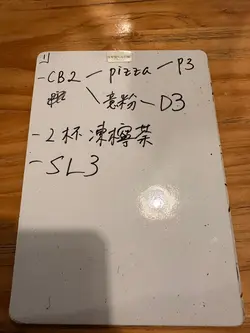 1
-CB2 - pizza - P3
\ 意粉 - D3
-2杯凍檸茶
-SL3